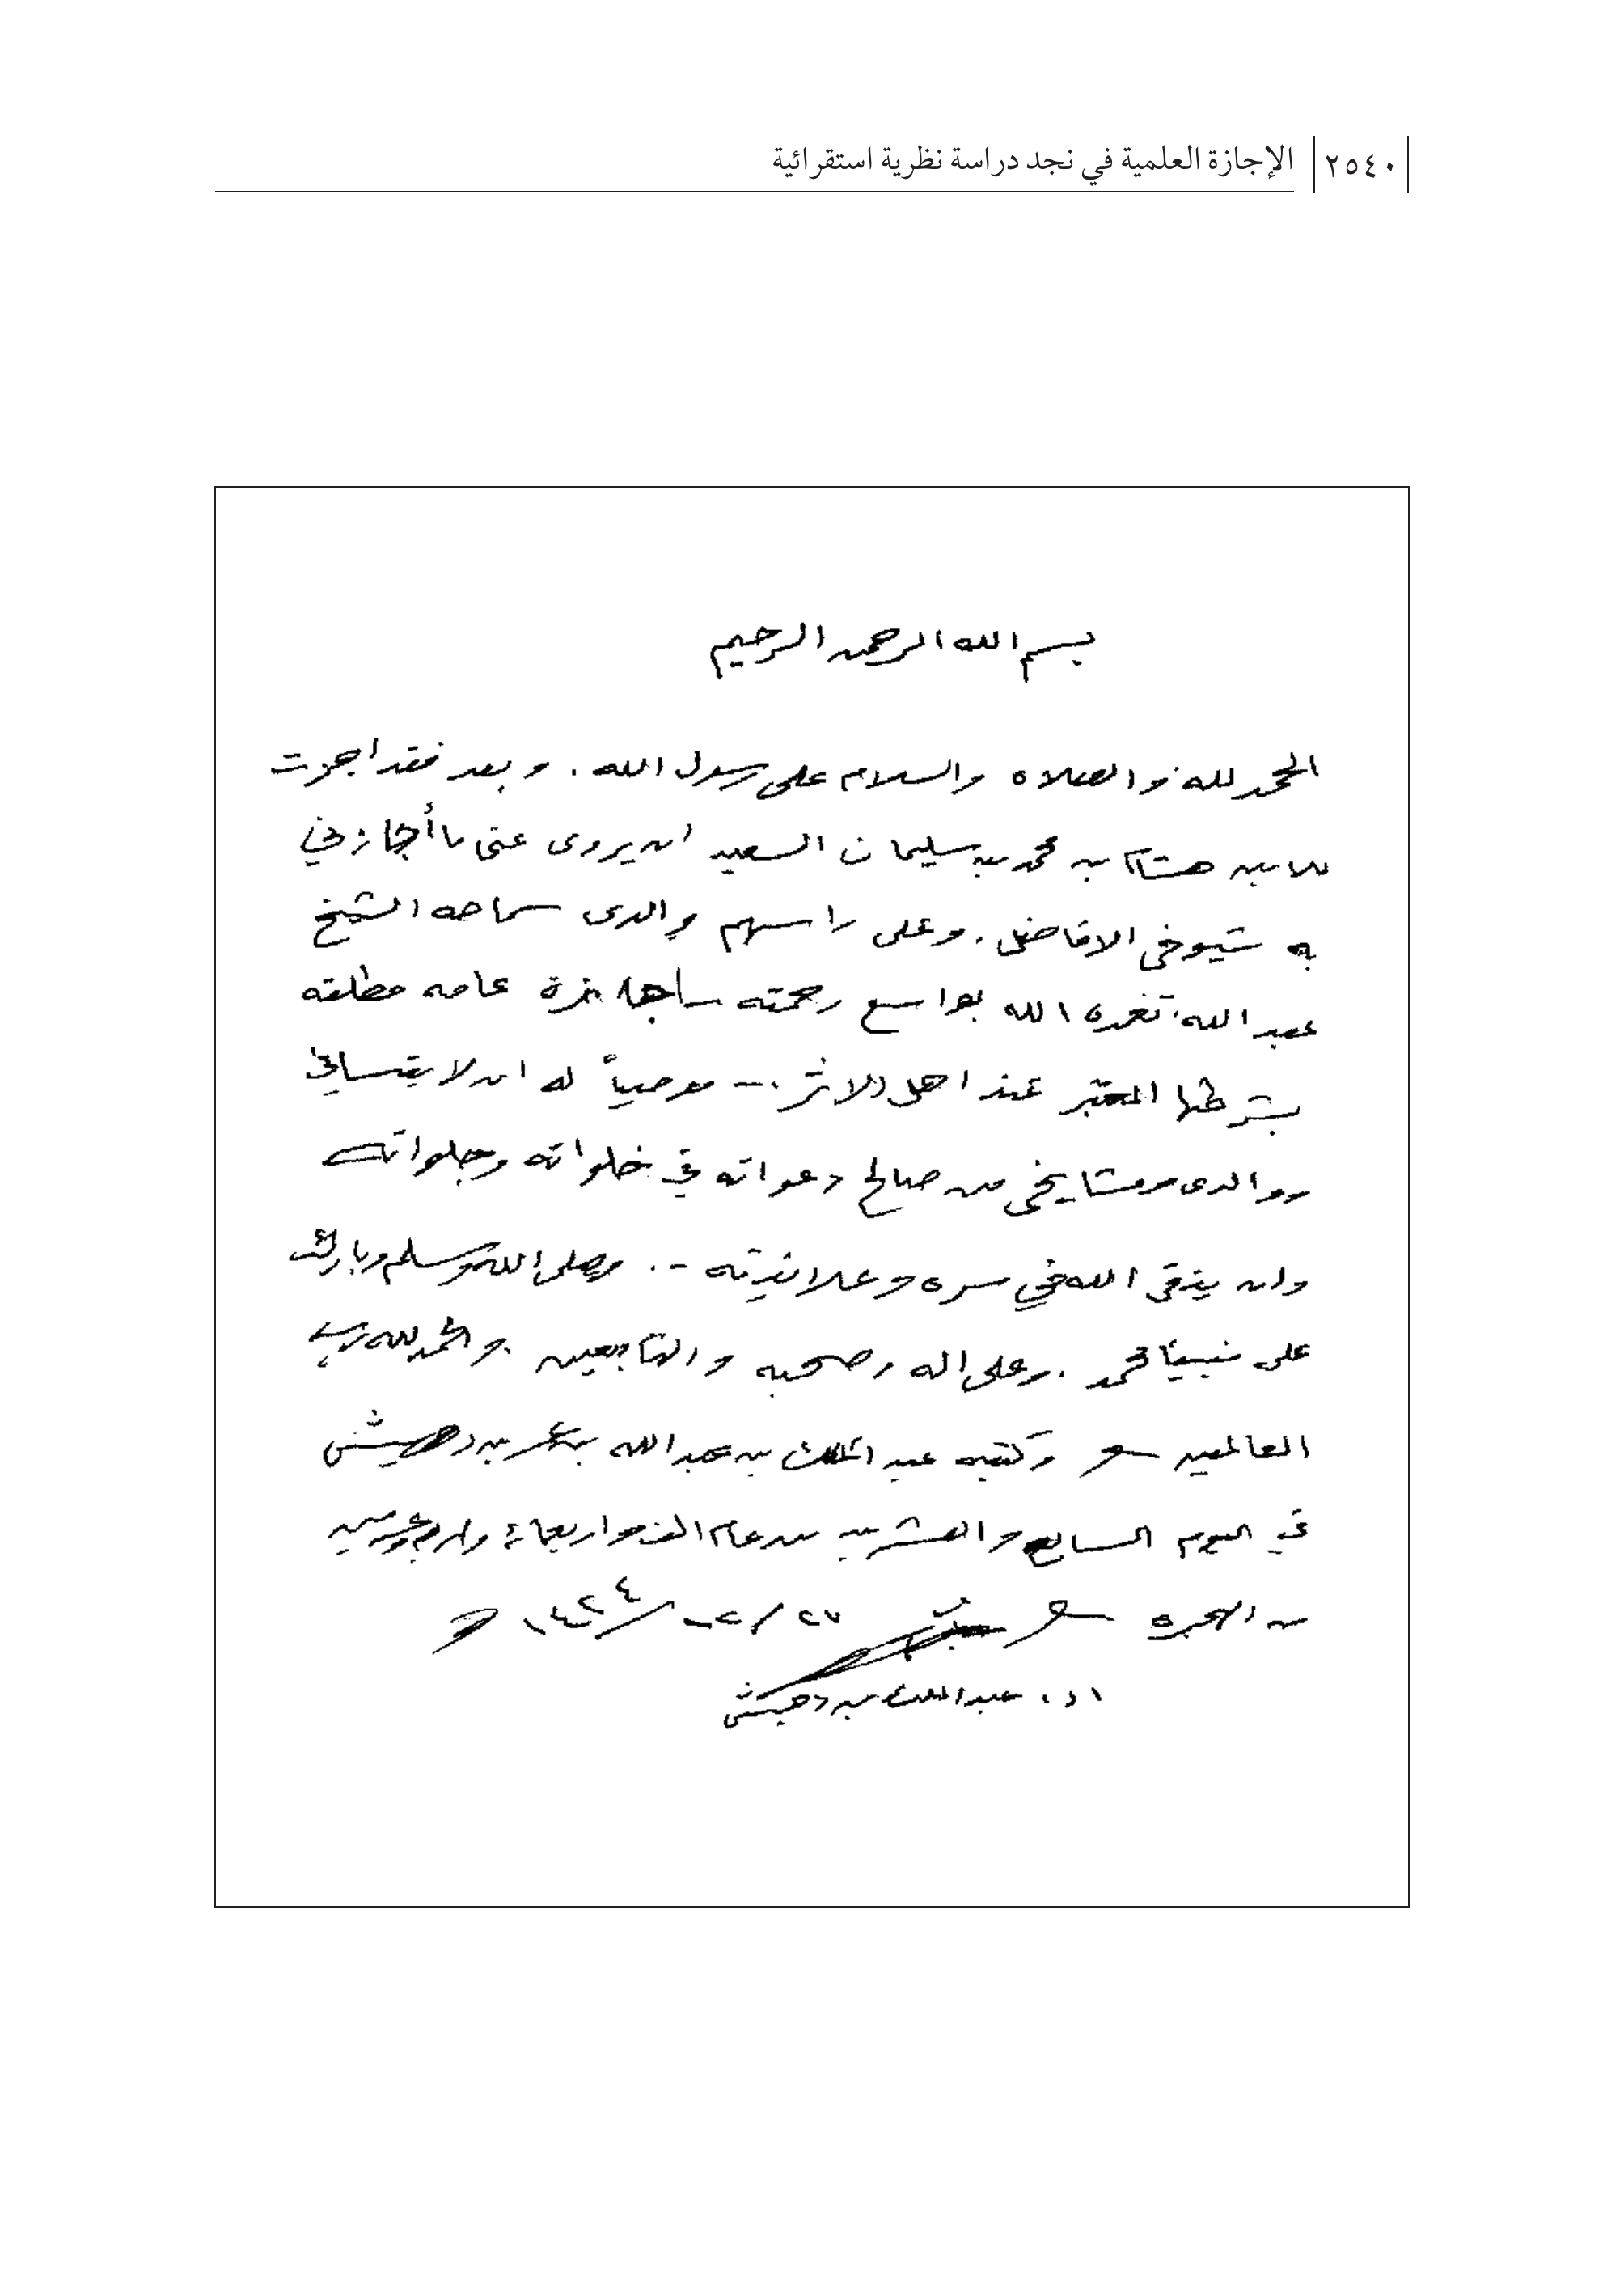 ٢٥٤٠ الإجازة العلمية في نجد دراسة نظرية استقرائية
بسم الله الرحمن الرحيم
الحمد لله والصلاه والسلام على رسول الله . وبعد فقد اجزت
للابن هشام بن محمد بن سليمان السعيد ان يروى عنى ما أجازني
به شيوخى الافاضل . وعلى راسهم والدى سماحه الشيخ
عبد الله تغمده الله بواسع رحمته اجازة عامه مطلقه
بشرطها المعتبر عند اهل الاثر .- موصياً له ان لا ينساني
ووالدى ومشايخى من صالح دعواته في خلواته وجلواته
وان يتقى الله في سره وعلانيته -. وصلى الله وسلم وبارك
على نبينا محمد . وعلى اله وصحبه والتابعين . والحمد لله رب
العالمين وكتبه عبد الملك بن عبد الله بن عمر بن دهيش
في اليوم السابع والعشرين من عام الف واربعمائة واربع وعشرين
من الهجره ٢٧ / ٢ - / ١٤٢٤ هـ
ا د . عبد الملك بن دهيش